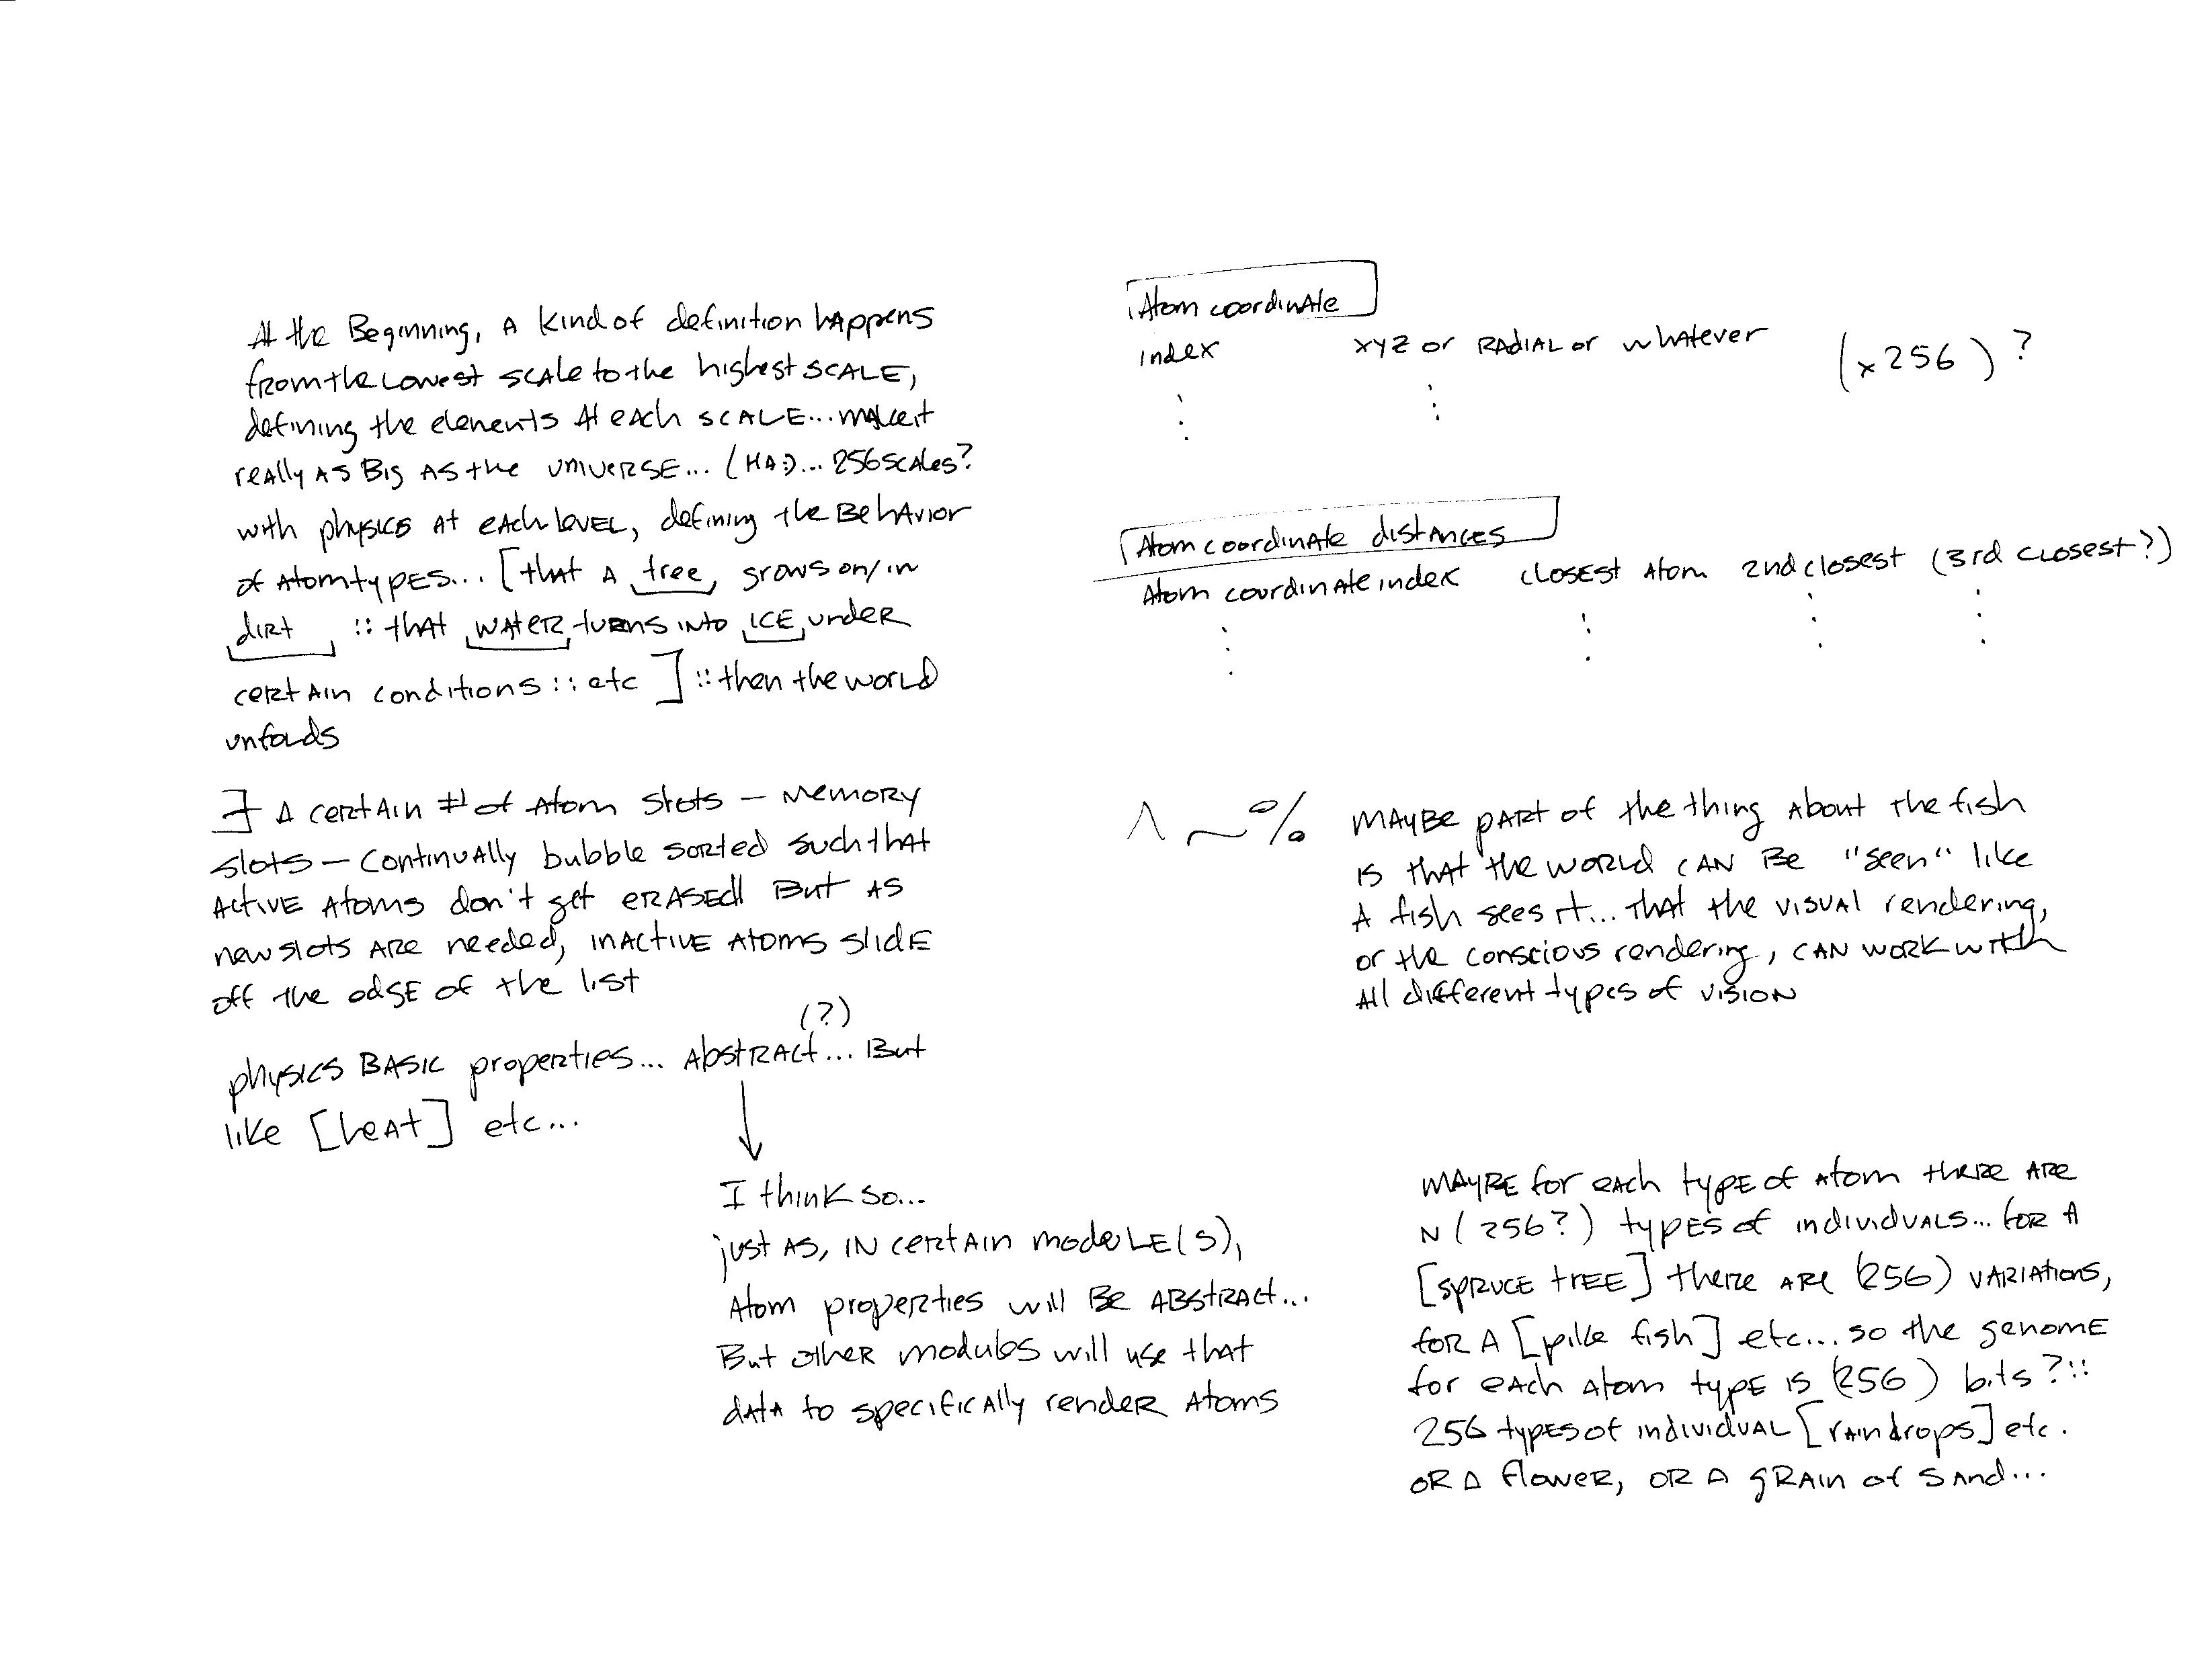 At the Beginning, A kind of definition happens
from the lowest scale to the highest scale,
defining the elements At each scale... make it
really As Big As the universe... (HA:)... 256 scales?
with physics At each level, defining the Behavior
of Atom types... [that A tree, grows on/in
dirt :: that water turns into ICE, under
certain conditions :: etc ] :: then the world
unfolds
∃ A certain # of Atom slots – memory
slots – continually bubble sorted such that
Active Atoms don't get erased But As
new slots Are needed, inactive Atoms slide
off the edge of the list
(?)
physics BASIC properties... Abstract... But
like [heat] etc...
I think so...
just As, in certain module(s),
Atom properties will Be Abstract...
But other modules will use that
data to specifically render Atoms
Atom coordinate
index XYZ or RADIAL or whatever (x 256) ?
Atom coordinate distances
Atom coordinate index closest Atom 2nd closest (3rd closest?)
^ ~ % MAYBE part of the thing About the fish
is that the world CAN Be "seen" like
A fish sees it... that the visual rendering,
or the conscious rendering, CAN work with
All different types of vision
MAYBE for each type of Atom there Are
N (256?) types of individuals... for A
[spruce tree] there Are (256) variations,
for A [pike fish] etc... so the genome
for each Atom type is (256) bits? ::
256 types of individual [raindrops] etc.
OR A flower, OR A grain of sand...